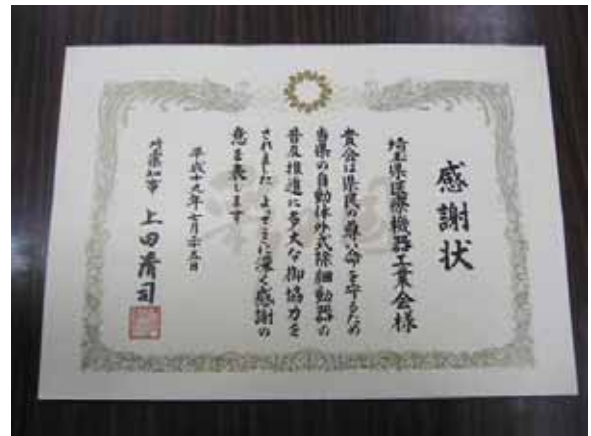 感謝状
埼玉県医療機器工業会様
貴会は県民の尊い命を守るため
当県の自動体外式除細動器の
普及推進に多大な御協力を
されました よってここに深く感謝の
意を表します
平成十九年七月二十五日
埼玉県知事 上田清司